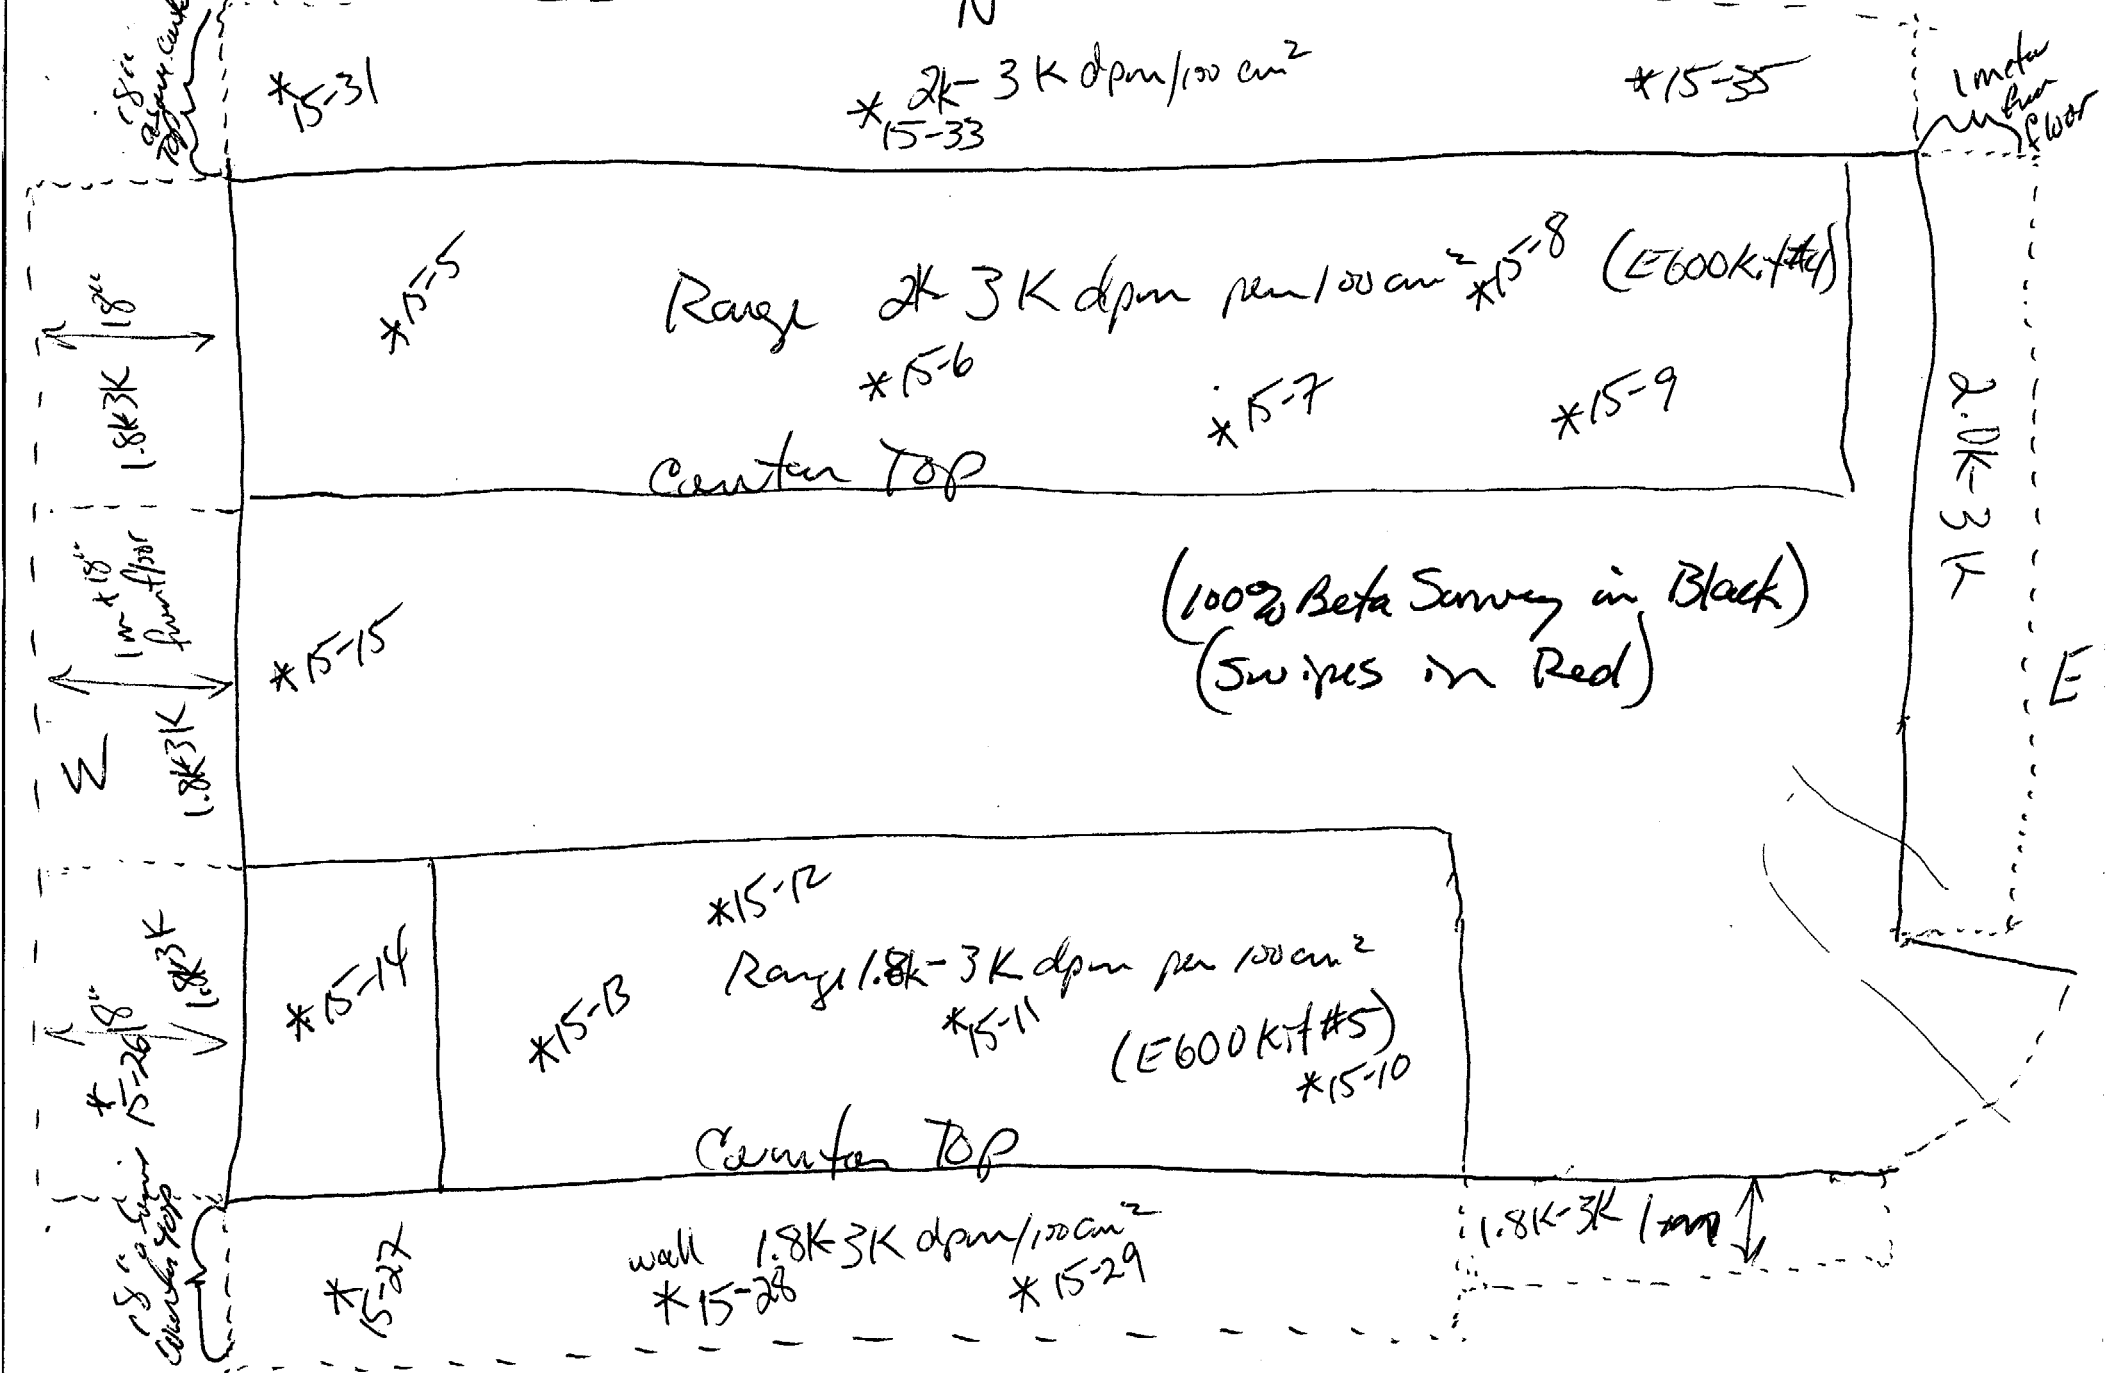 N
*15-31
2K-3K dpm/100 cm²
*15-33
*15-35
18"
Top
1 meter
from
floor
*15-5
Range 2K-3K dpm per 100 cm²
*15-8
(E600 Kit #4)
*15-6
*15-7
*15-9
Counter Top
18"
1.8K-3K
2.0K-3K
1m + 18"
from floor
*15-15
(100% Beta Survey in Black)
(Swipes in Red)
E
W
1.8K-3K
*15-12
Range 1.8K-3K dpm per 100 cm²
*15-14
*15-13
*15-11
(E600 Kit #5)
*15-10
Counter Top
18"
1.8K-3K
*15-26
18" from
Counter Top
*15-27
wall 1.8K-3K dpm/100 cm²
*15-28
*15-29
1.8K-3K 1m